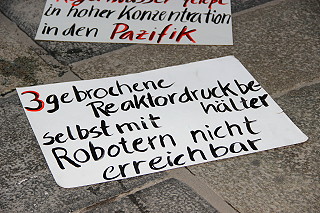 in hoher Konzentration
in den Pazifik
3 gebrochene
Reaktordruckbe
hälter
selbst mit
Robotern nicht
erreichbar